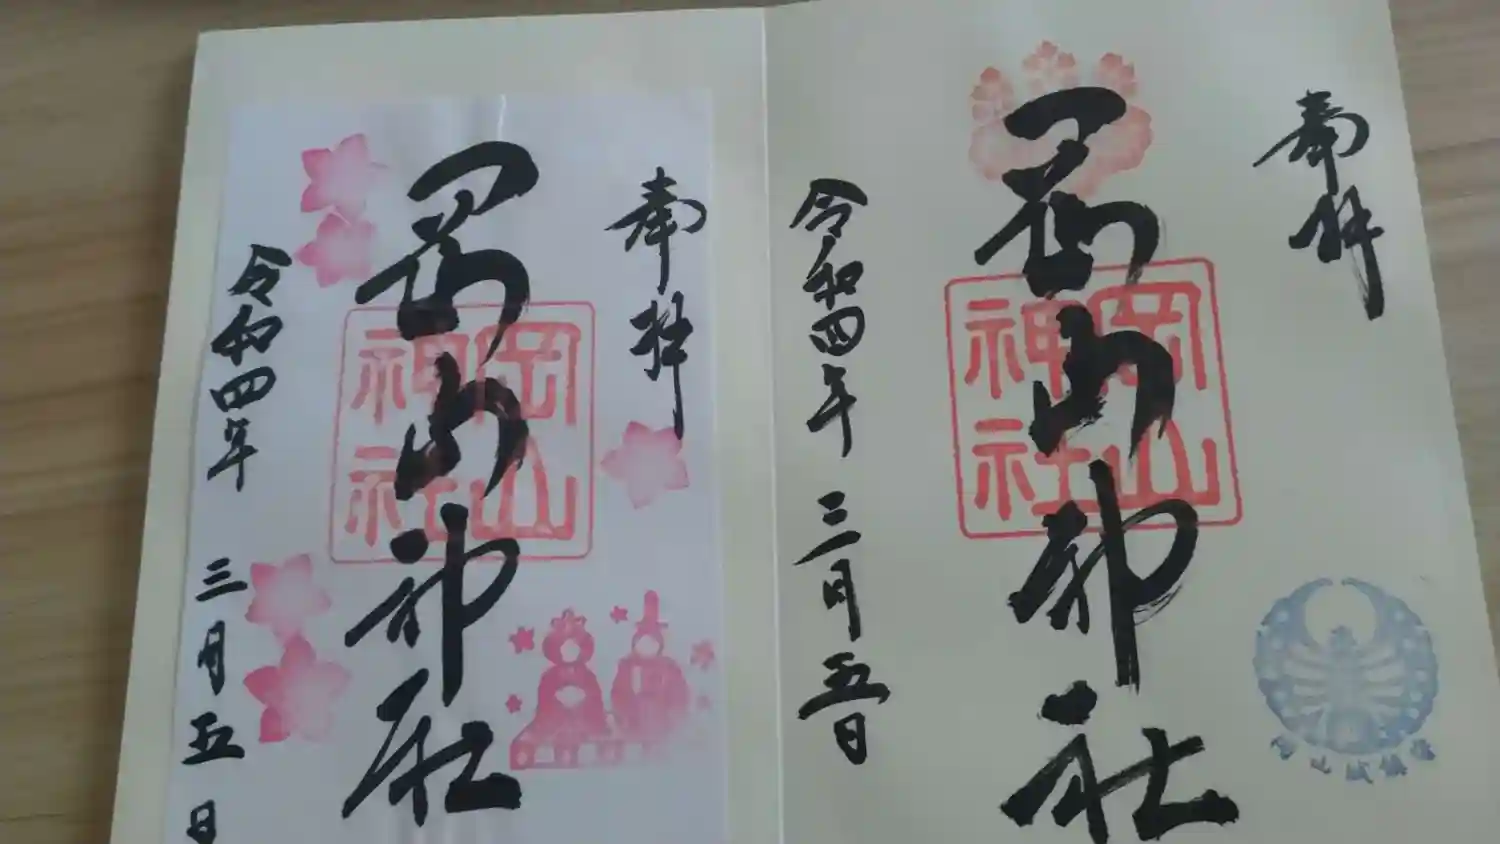 奉拝
岡山神社
岡山神社
令和四年 三月五日
奉拝
岡山神社
岡山神社
令和四年 三月五日